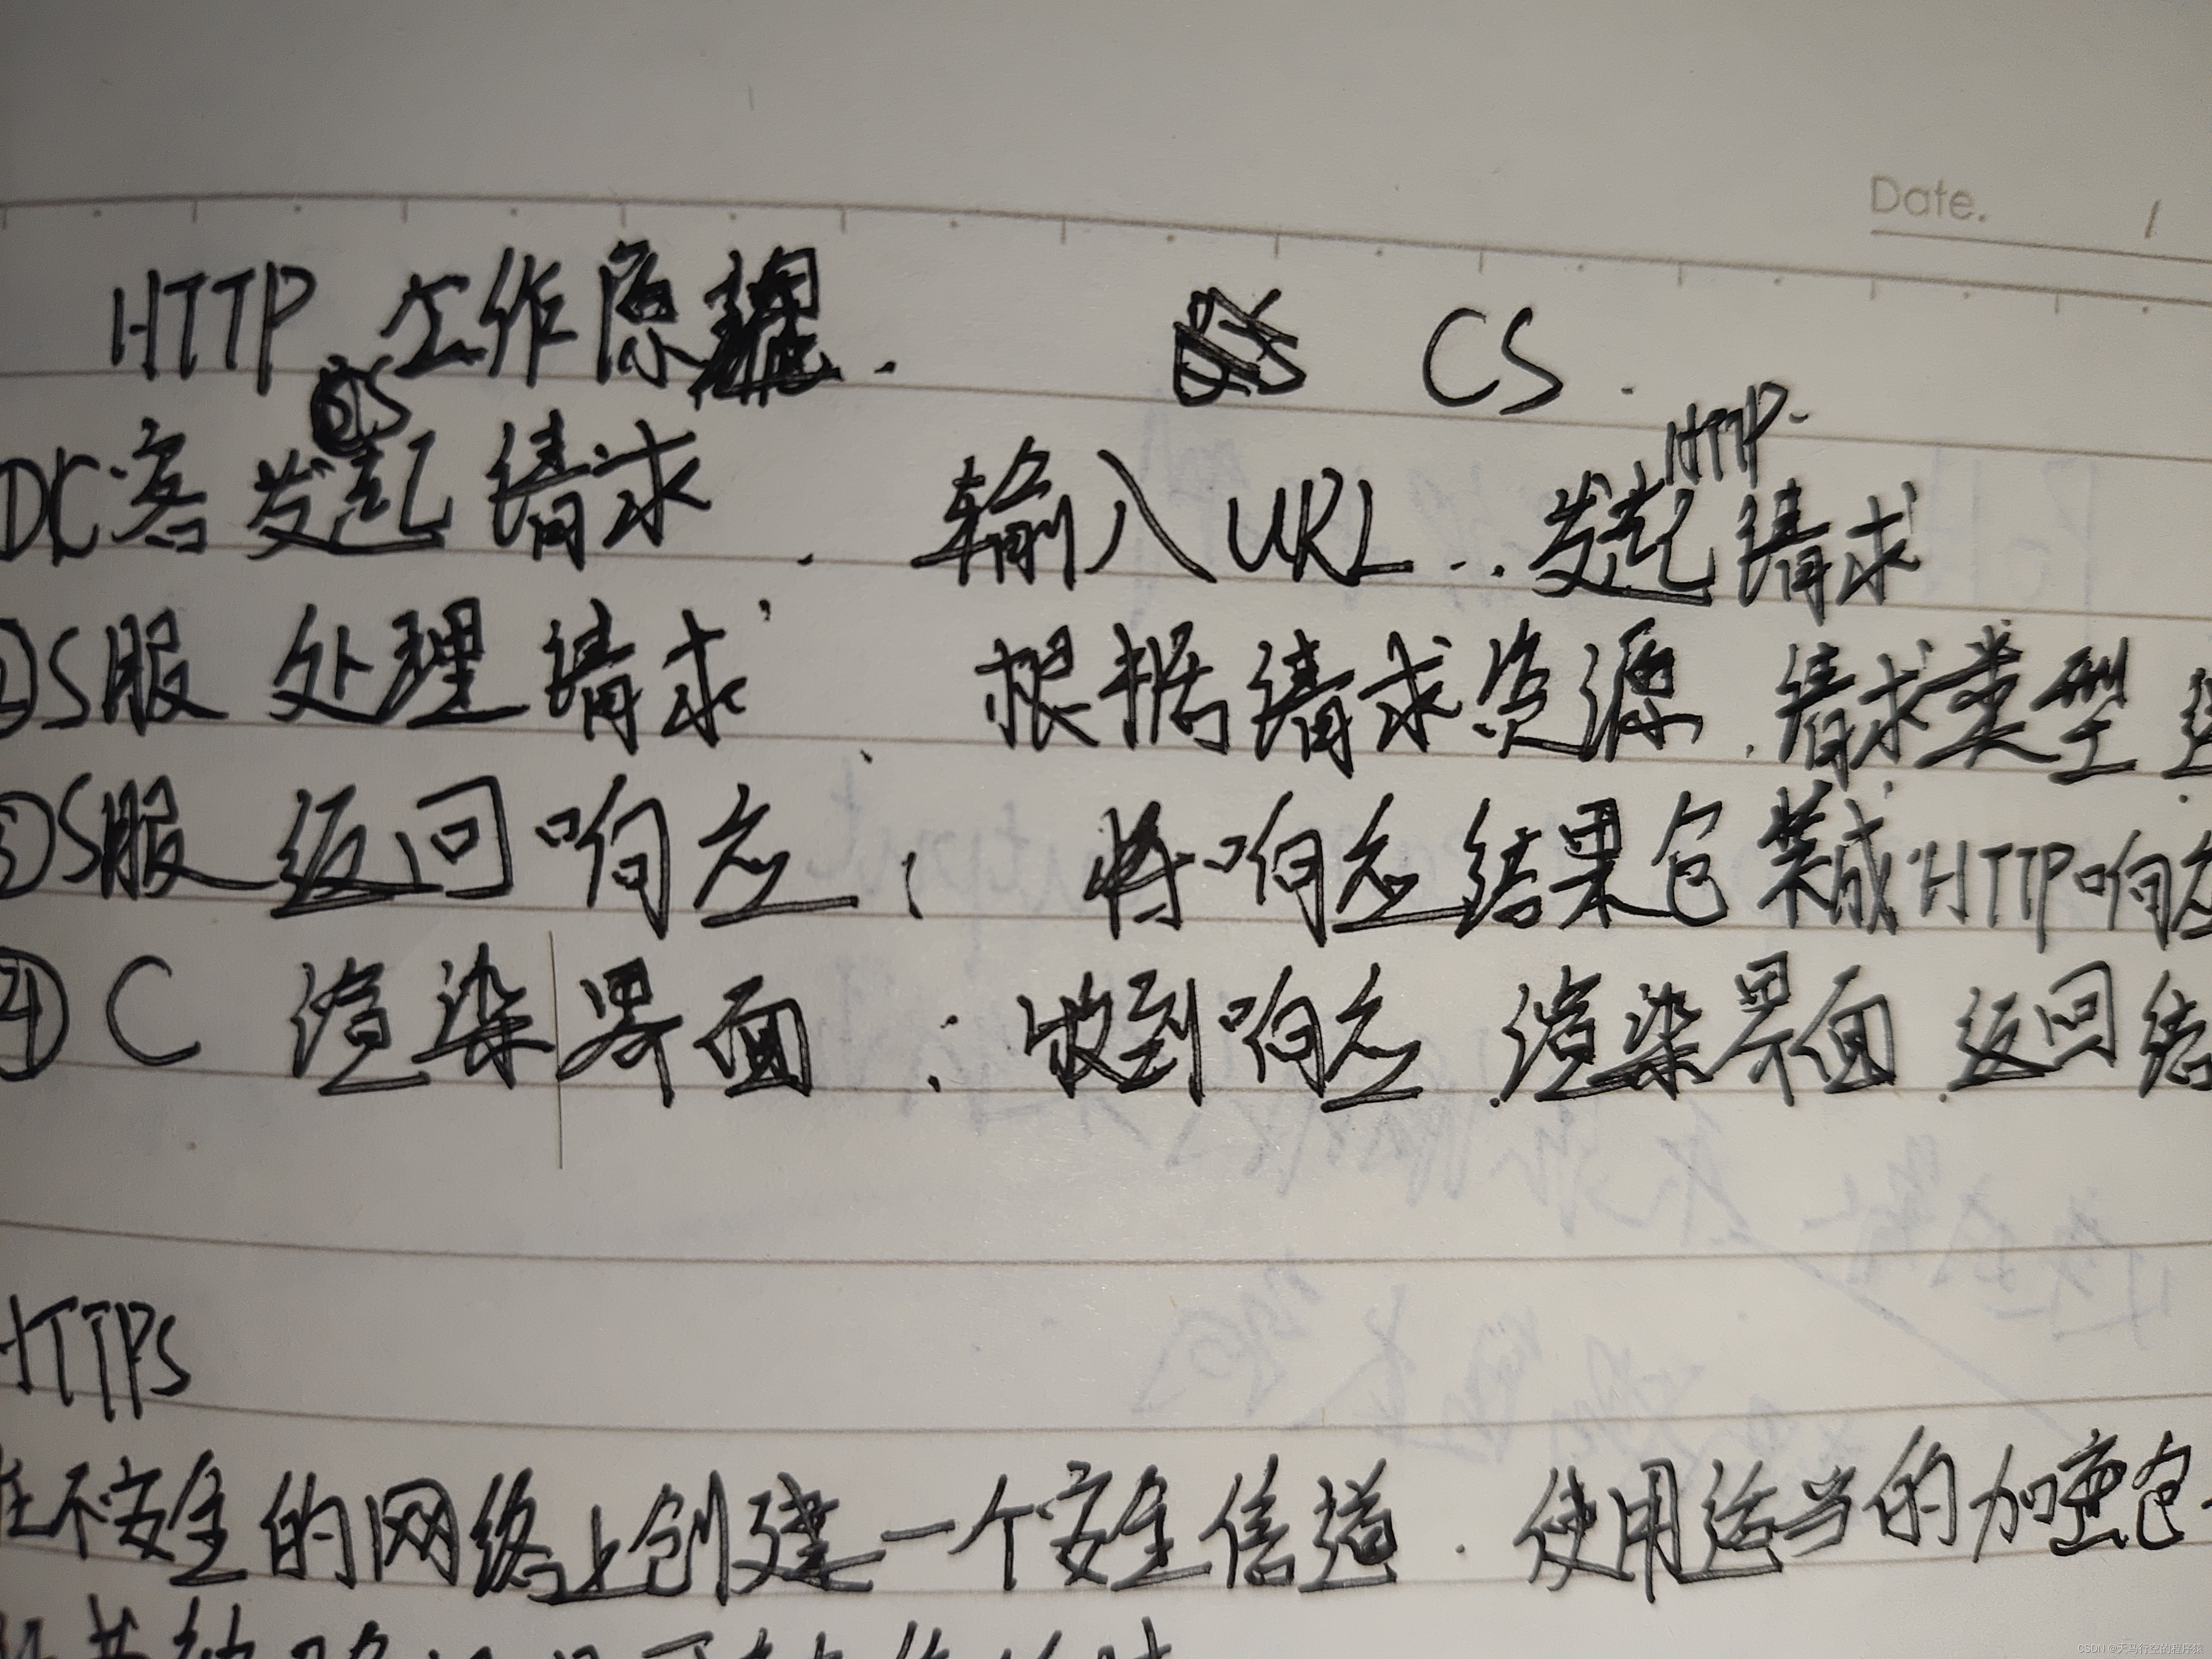 Date. /
HTTP 工作原理. CS.
①C客发起请求. 输入URL..发起HTTP请求
②S服 处理请求, 根据请求资源.请求类型
③S服 返回响应: 将响应结果包装成HTTP响应
④C 渲染界面: 收到响应.渲染界面.返回结
HTTPS
在不安全的网络上创建一个安全信道.使用适当的加密包
CSDN @天马行空的程序猿